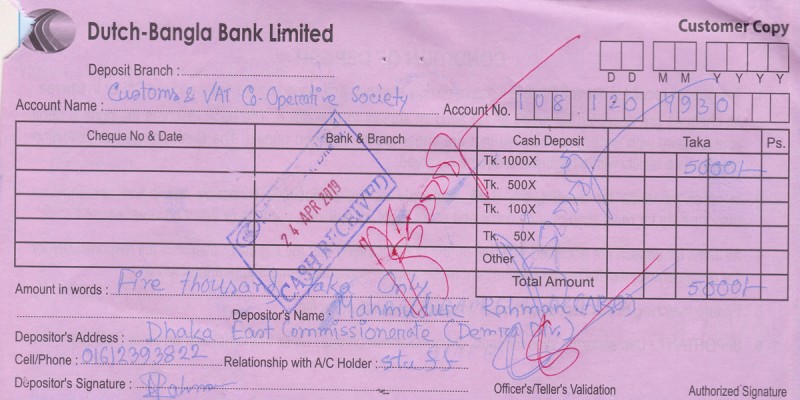 Dutch-Bangla Bank Limited
Customer Copy
D D M M Y Y Y Y
Deposit Branch :
Account Name : Customs & VAT Co-Operative Society
Account No. 108 120 9930
Cheque No & Date Bank & Branch Cash Deposit Taka Ps.
Tk. 1000X 5 5000/-
Tk. 500X
Tk. 100X
Tk. 50X
Other
Total Amount 5000/-
24 APR 2019
CASH RECEIVED
Amount in words : Five thousand taka Only
Depositor's Name : Mahmudur Rahman
Depositor's Address : Dhaka East Commissionerate (Demra Div.)
Cell/Phone : 01612393822 Relationship with A/C Holder : staff
Depositor's Signature :
Officer's/Teller's Validation
Authorized Signature